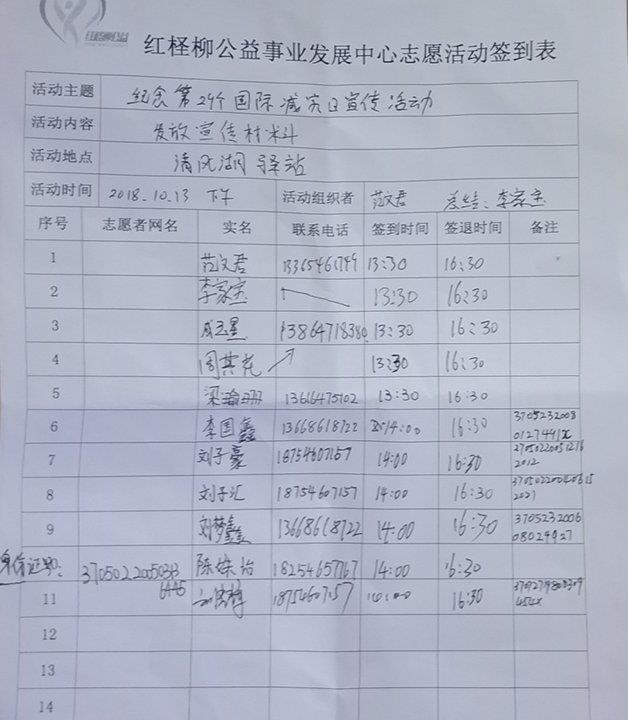 红柽柳公益
红柽柳公益事业发展中心志愿活动签到表
活动主题 纪念第29个国际减灾日宣传活动
活动内容 发放宣传材料
活动地点 清风湖驿站
活动时间 2018.10.13 下午 活动组织者 范文君 总结:李家宝
序号 志愿者网名 实名 联系电话 签到时间 签退时间 备注
1 范文君 13:30 16:30
2 李家宝 13:30 16:30
3 成玉星 13864718380 13:30 16:30
4 周其龙 13:30 16:30
5 梁瀚丹 13616475102 13:30 16:30
6 李国鑫 13668618722 14:00 16:30 3705232008
0127441X
7 刘子豪 18754607157 14:00 16:30
2012
8 刘子汇 18754607157 14:00 16:30
2027
9 刘梦鑫 13668618722 14:00 16:30 3705232006
08024927
身份证号: 陈姝怡 18254657767 14:00 16:30
11 18754607157 16:30
12
13
14